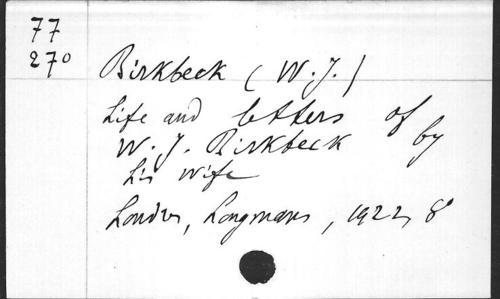 77
270
Birkbeck (W. J.)
Life and letters of
W. J. Birkbeck by
his wife
London, Longmans, 1922, 8°